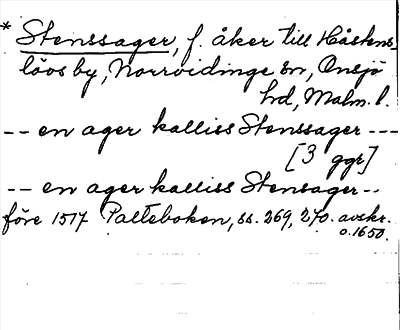 * Stenssager, f. åker till Håstens-
lövs by, Norrvidinge sn, Onsjö
hd, Malm. l.
-- en ager kalliss Stenssager ---
[3 ggr]
-- en ager kalliss Stensager --
före 1517 Palteboken, ss. 269, 270. avskr.
o. 1650.